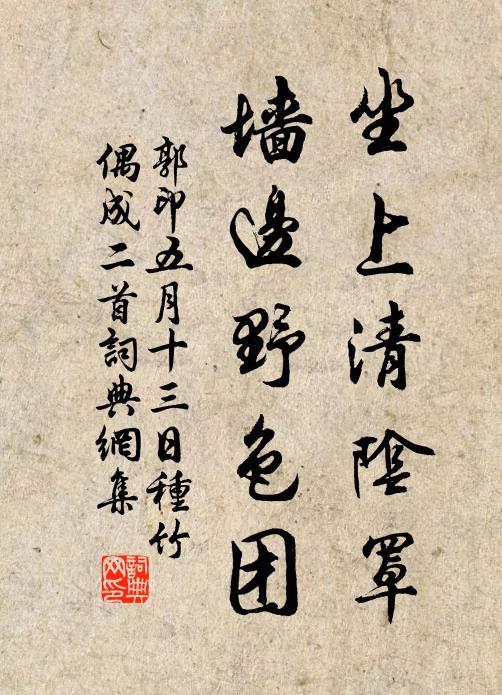 坐上清陰罩
墙邊野色团
郭印五月十三日種竹
偶成二首詞典網集
詞典网印